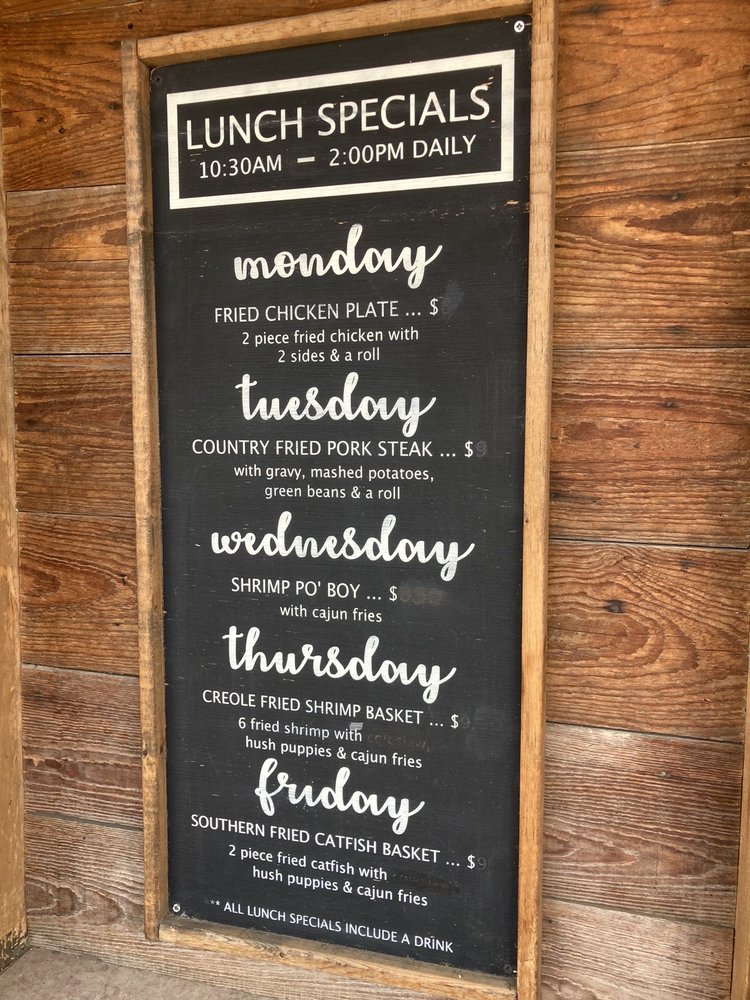 LUNCH SPECIALS
10:30AM – 2:00PM DAILY
monday
FRIED CHICKEN PLATE ... $
2 piece fried chicken with
2 sides & a roll
tuesday
COUNTRY FRIED PORK STEAK ... $9
with gravy, mashed potatoes,
green beans & a roll
wednesday
SHRIMP PO' BOY ... $
with cajun fries
thursday
CREOLE FRIED SHRIMP BASKET ... $9
6 fried shrimp with coleslaw,
hush puppies & cajun fries
friday
SOUTHERN FRIED CATFISH BASKET ... $9
2 piece fried catfish with
hush puppies & cajun fries
** ALL LUNCH SPECIALS INCLUDE A DRINK